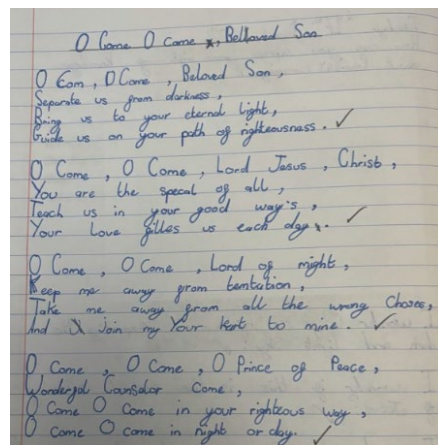 O Come O Come, Bellaved Son
O Com, O Come, Beloved Son,
Separate us from darkness,
Bring us to your eternal light,
Guide us on your path of righteousness.
O Come, O Come, Lord Jesus, Christ,
You are the specal of all,
Teach us in your good way's,
Your Love filles us each day.
O Come, O Come, Lord of might,
Keep me away from temtation,
Take me away from all the wrong Choses,
And join my Your hert to mine.
O Come, O Come, O Prince of Peace,
Wonderful Counselor Come,
O Come O Come in your righteous way,
O Come O Come in night or day.